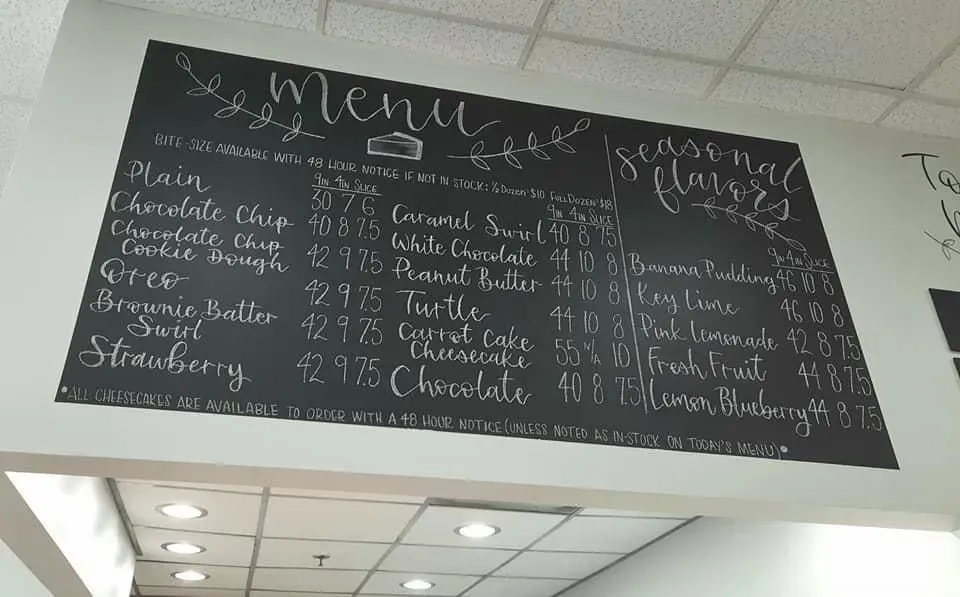 menu
BITE-SIZE AVAILABLE WITH 48 HOUR NOTICE IF NOT IN STOCK: ½ DOZEN-$10 FULL DOZEN-$18
9IN 4IN SLICE
Plain 30 7 6
Chocolate Chip 40 8 7.5
Chocolate Chip
Cookie Dough 42 9 7.5
Oreo 42 9 7.5
Brownie Batter
Swirl 42 9 7.5
Strawberry 42 9 7.5
9IN 4IN SLICE
Caramel Swirl 40 8 7.5
White Chocolate 44 10 8
Peanut Butter 44 10 8
Turtle 44 10 8
Carrot Cake
Cheesecake 55 N/A 10
Chocolate 40 8 7.5
•ALL CHEESECAKES ARE AVAILABLE TO ORDER WITH A 48 HOUR NOTICE (UNLESS NOTED AS IN-STOCK ON TODAY'S MENU)•
seasonal
flavors
9IN 4IN SLICE
Banana Pudding 46 10 8
Key Lime 46 10 8
Pink Lemonade 42 8 7.5
Fresh Fruit 44 8 7.5
Lemon Blueberry 44 8 7.5